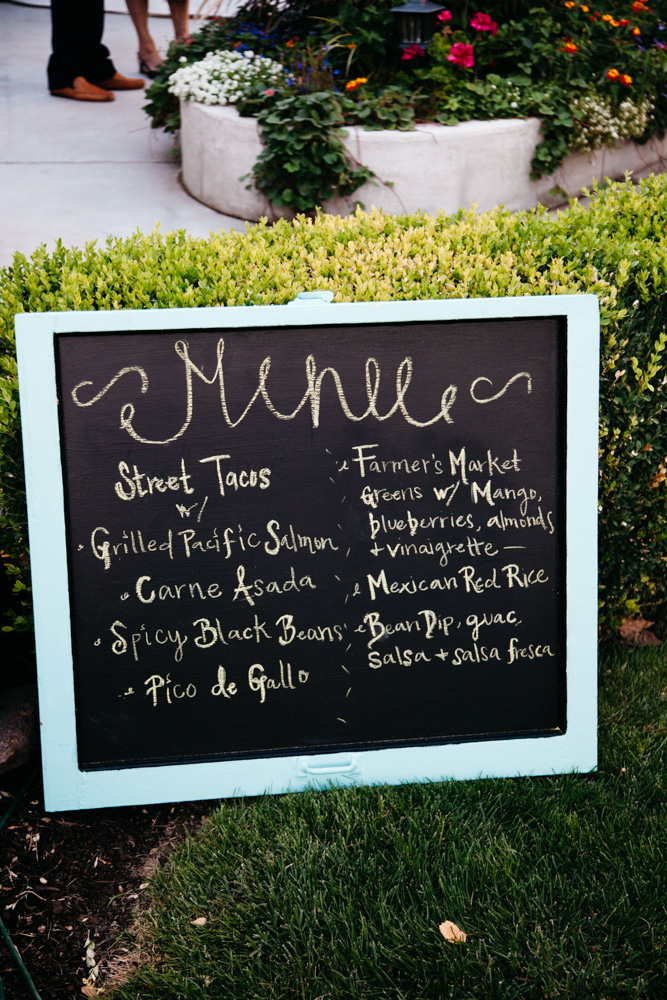 Menu
Street Tacos
w/
Grilled Pacific Salmon
Carne Asada
Spicy Black Beans
Pico de Gallo
Farmer's Market
Greens w/ Mango,
blueberries, almonds
+ vinaigrette —
Mexican Red Rice
Bean Dip, guac,
Salsa + salsa fresca